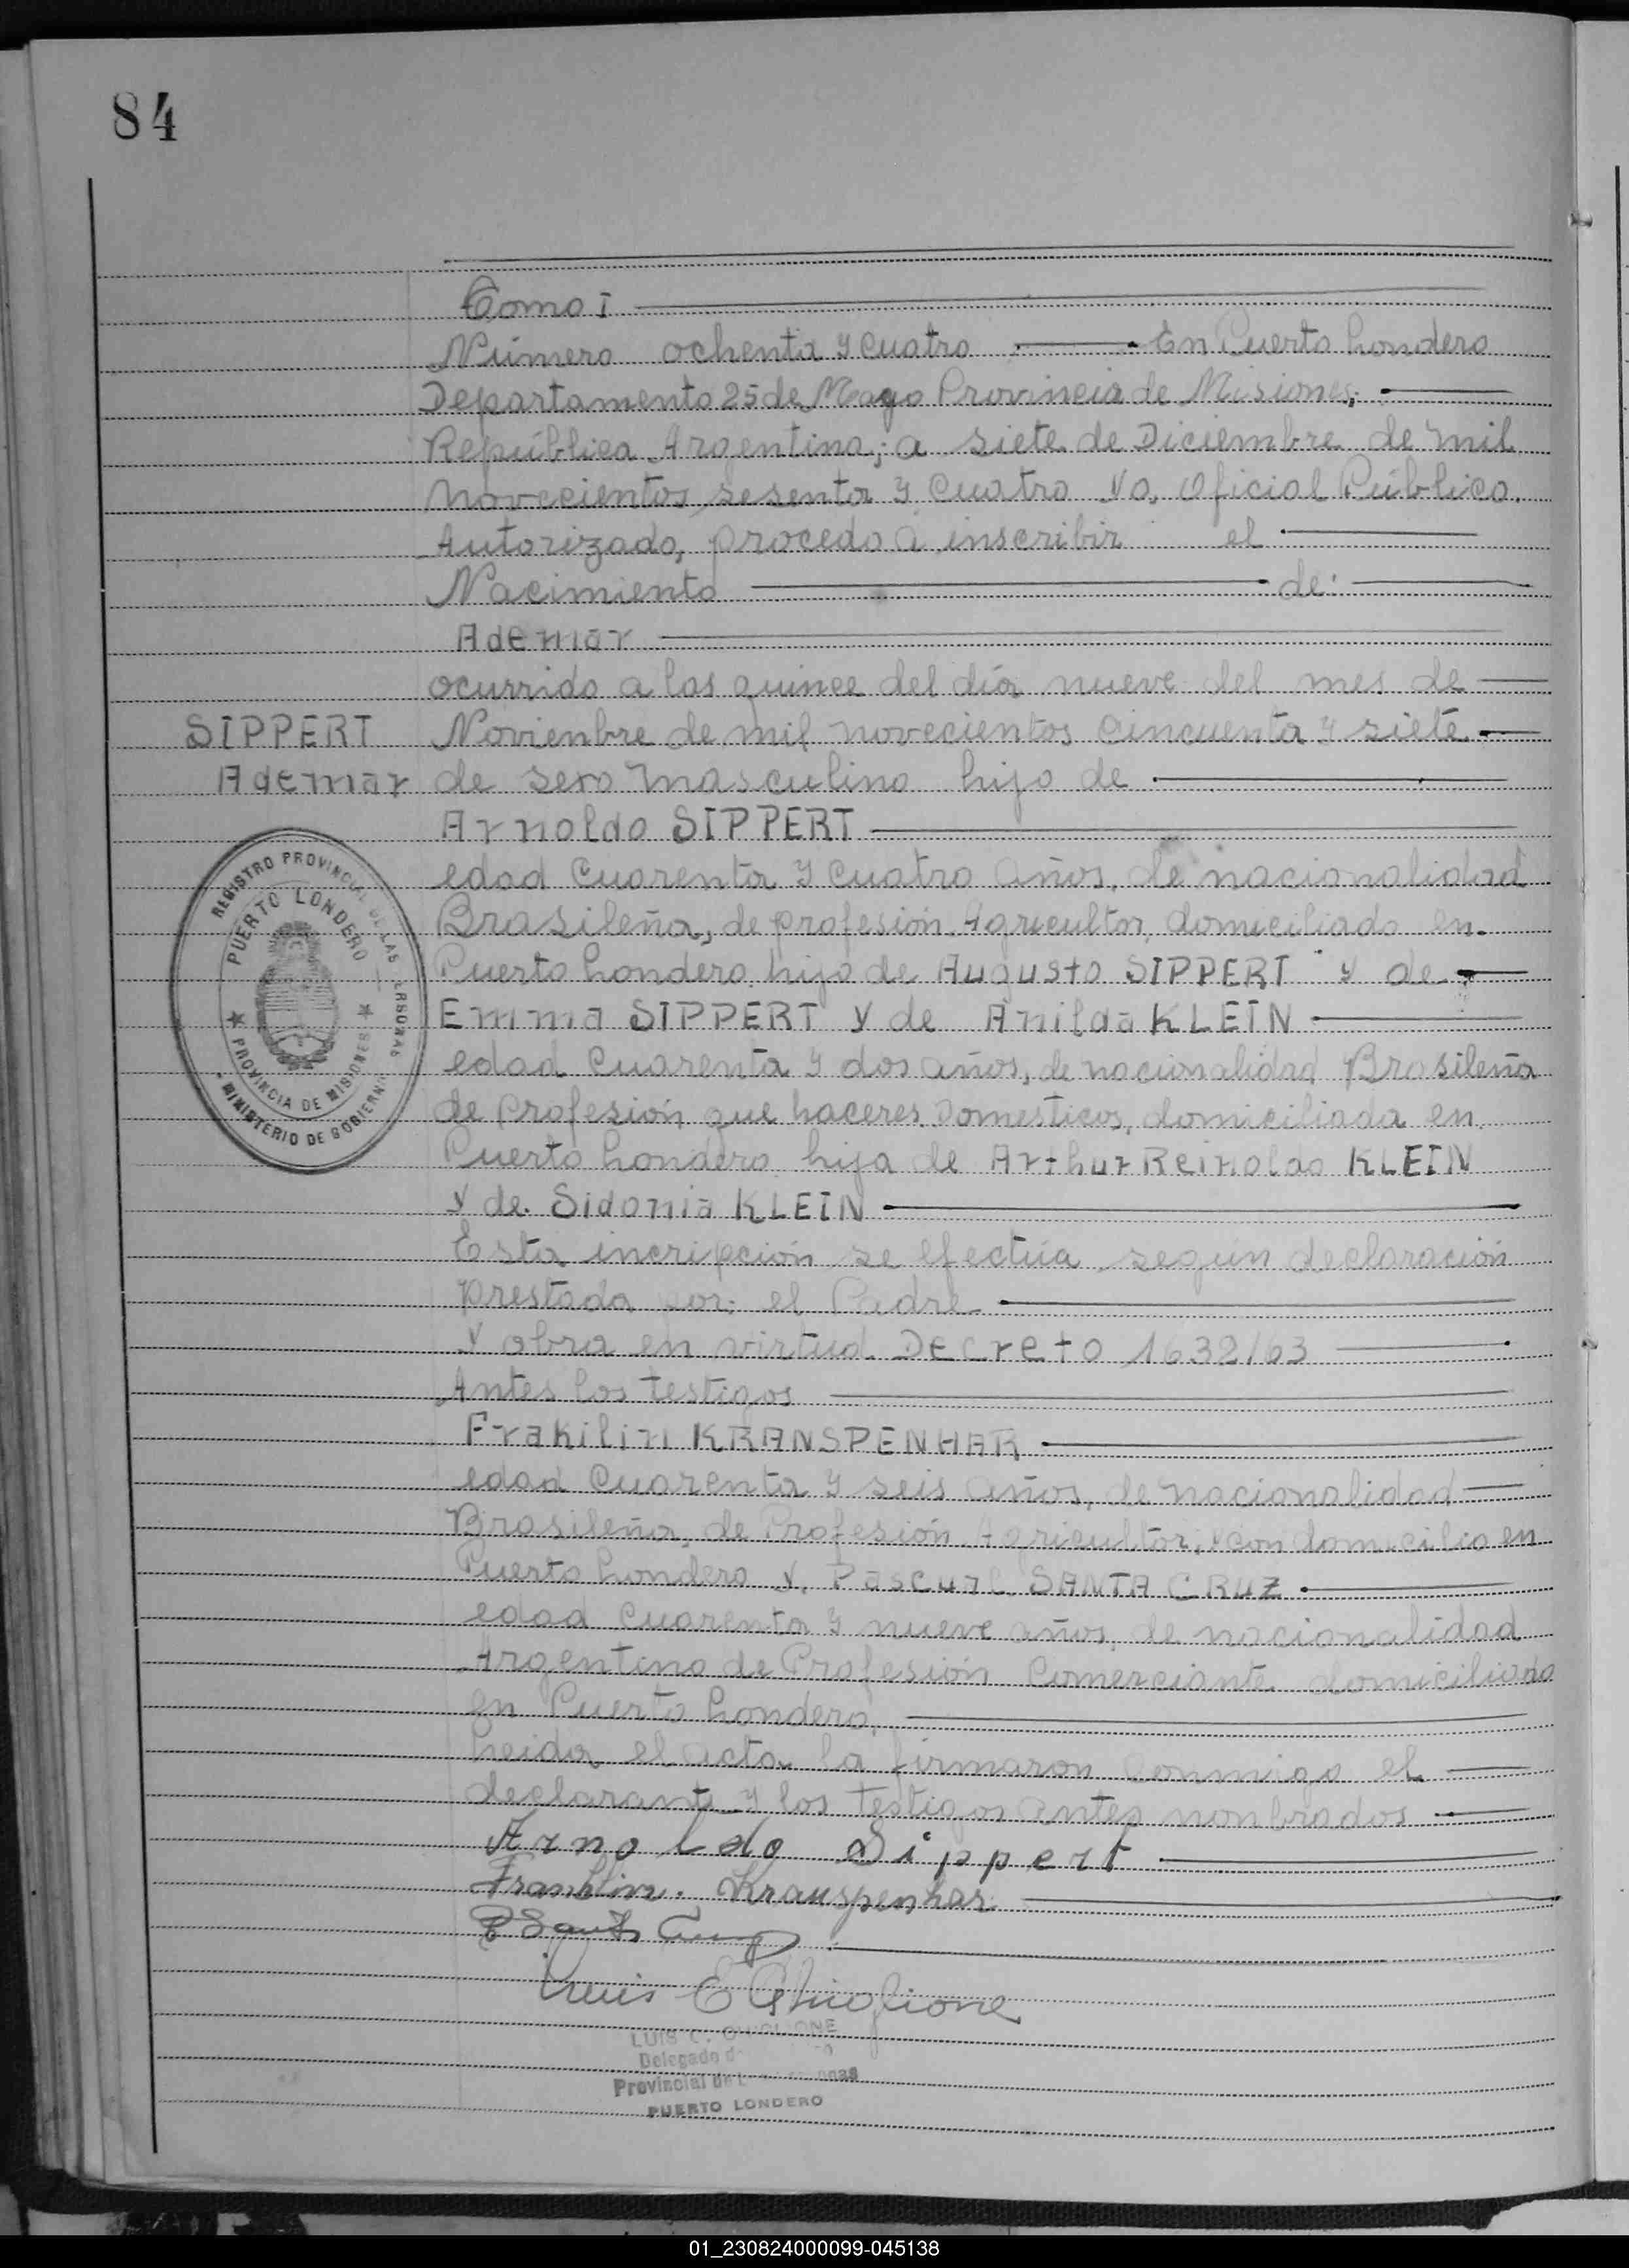 84
Tomo I
Número ochenta y cuatro En Puerto Londero
Departamento 25 de Mayo Provincia de Misiones,
República Argentina; a siete de Diciembre de mil
novecientos sesenta y cuatro Yo, Oficial Público.
Autorizado, procedo a inscribir el
Nacimiento de:
Ademar
ocurrido a las quince del día nueve del mes de
SIPPERT Novienbre de mil novecientos cincuenta y siete
Ademar de sexo masculino hijo de
Arnoldo SIPPERT
edad cuarenta y cuatro años, de nacionalidad
Brasileña, de profesión Agricultor, domiciliado en
Puerto Londero, hijo de Augusto SIPPERT y de
Emma SIPPERT y de Anilda KLEIN
edad cuarenta y dos años, de nacionalidad Brasileña
de profesión que haceres Domesticos, domiciliada en
Puerto Londero hija de Arthur Reinoldo KLEIN
y de Sidonia KLEIN
Esta incripción se efectúa según declaración
prestada por: el Padre
y obra en virtud Decreto 1632/63
Antes los testigos
Frakilin KRANSPENHAR
edad cuarenta y seis años, de nacionalidad
Brasileña, de Profesión Agricultor, y con domicilio en
Puerto Londero y, Pascual SANTA CRUZ
edad cuarenta y nueve años, de nacionalidad
Argentino de Profesión Comerciante domiciliado
en Puerto Londero,
Leida el acta la firmaron conmigo el
declarante y los testigos antes nonbrados
Arnoldo Sippert
Franklin Krauspenhar
P Santa Cruz
Luis C Ghiglione
LUIS C. GHIGLIONE
Delegado
Provincial de
PUERTO LONDERO
REGISTRO PROVINCIAL DE LAS PERSONAS
PUERTO LONDERO
PROVINCIA DE MISIONES
MINISTERIO DE GOBIERNO
01_230824000099-045138